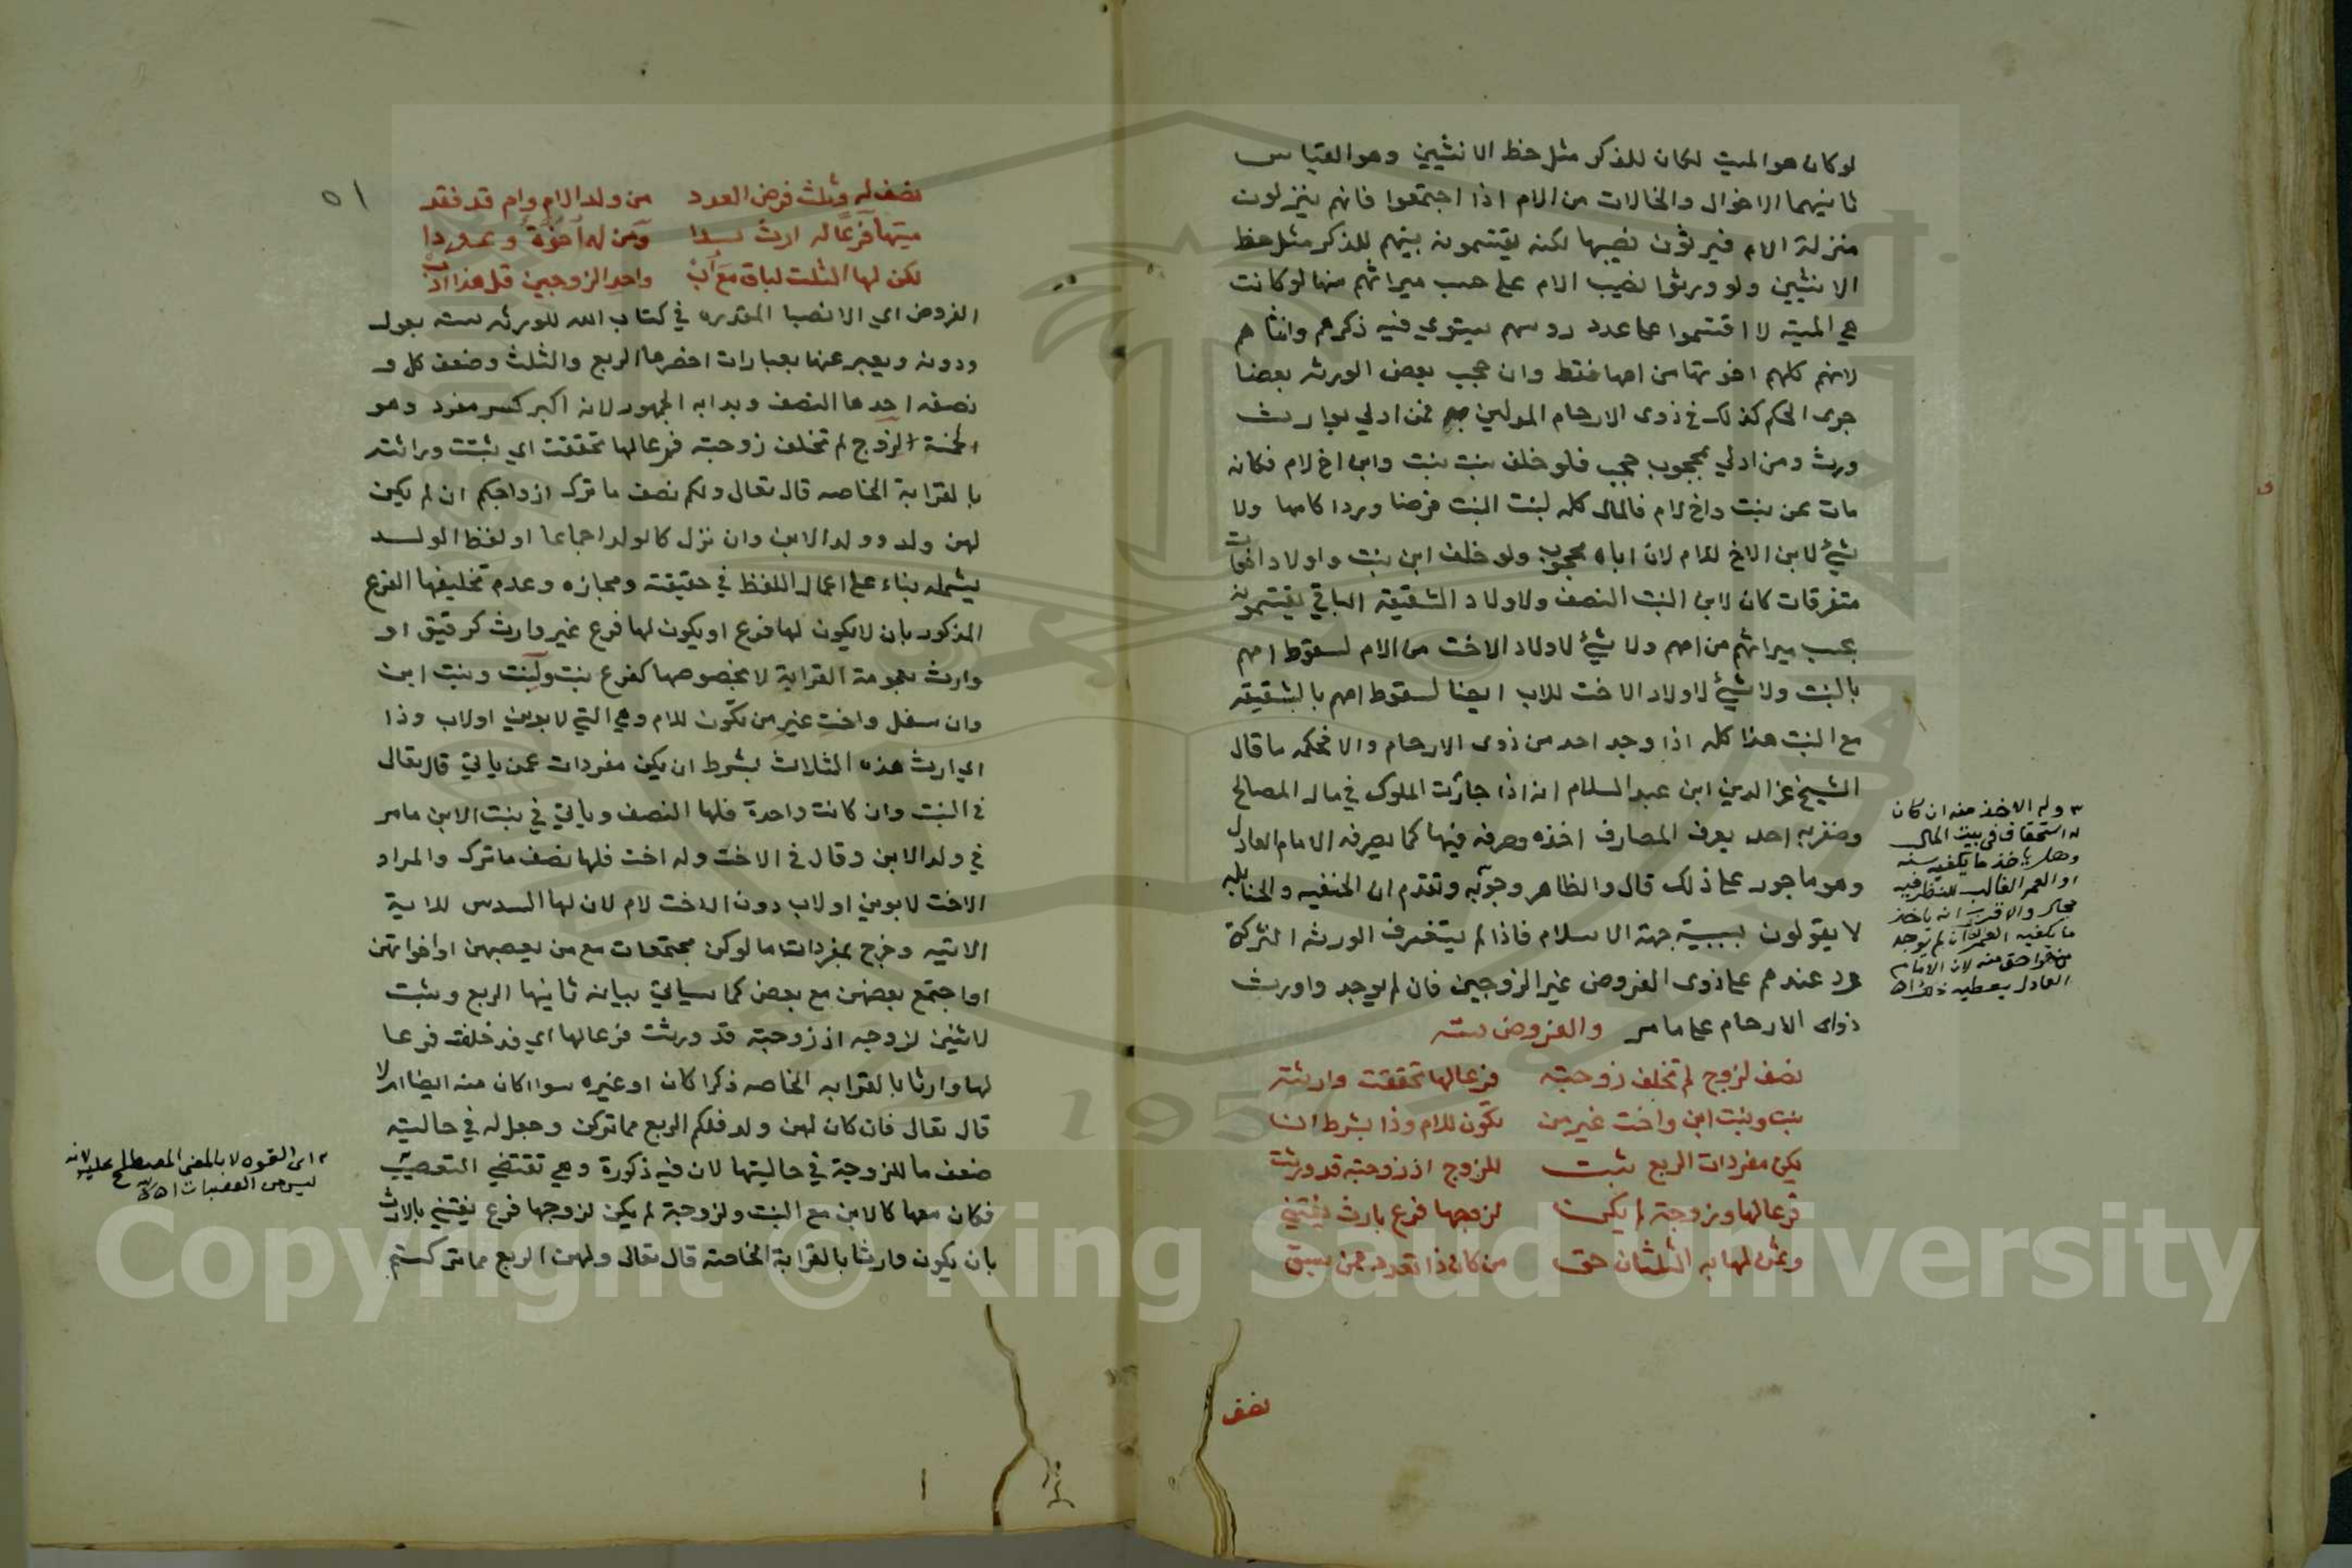 لوكان هو الميت لكان للذكر مثل حظ الانثيين وهو القياس
ثانيهما الاخوال والخالات من الام اذا اجتمعوا فانهم ينزلون
منزلة الام فيرثون نصيبها لكنه يقتسمونه بينهم للذكر مثل حظ
الانثيين ولو ورثوا نصيب الام على حسب ميراثهم منها لو كانت
هي الميته لاقتسموا على عدد روسهم يستوي فيه ذكرهم وانثاهم
لانهم كلهم اخوتها من امها فقط وان حجب بعض الورثه بعضا
جرى الحكم كذلك في ذوى الارحام المدلين بهم فمن ادلي بوارث
ورث ومن ادلي بمحجوب حجب فلو خلف بنت بنت وابن اخ لام فكانه
مات عن بنت واخ لام فالمال كله لبنت البنت فرضا وردا كامها ولا
شئ لابن الاخ للام لان اباه محجوب ولو خلف ابن بنت واولاد اخوات
متفرقات كان لابن البنت النصف ولاولاد الشقيقه الباقي يقتسمونه
بحسب ميراثهم من امهم ولا شئ لاولاد الاخت من الام لسقوط امهم
بالبنت ولا شئ لاولاد الاخت للاب ايضا لسقوط امهم بالشقيقه
مع البنت هذا كله اذا وجد احد من ذوى الارحام والا فحكمه ما قال
الشيخ عز الدين ابن عبد السلام انه اذا جارت الملوك في مال المصالح
وظفر به احد يعرف المصارف اخذه وصرفه فيها كما يصرفه الامام العادل
وهو ماجور على ذلك قال والظاهر وجوبه وتقدم ان الحنفيه والحنابله
لا يقولون بسببية جهة الاسلام فاذا لم يستغرف الورثه التركة
رد عندهم على ذوى الفروض غير الزوجين فان لم يوجد واورث
ذواى الارحام على ما مر والفروض سته
نصف لزوج لم تخلف زوجته فرعا لها تحققت وارثته
بنت وبنت ابن واخت غير من تكون للام وذا بشرط ان
يكن مفردات الربع ثبت للزوج اذ زوجته قد ورثت
فرعا لها وزوجة لم يكن لزوجها فرع بارث يقتني
وثمن لها به الثلثان حق من كان ذا تعدد ممن سبق
نصف
وله الاخذ منه ان كان
له استحقاق في بيت المال
وهل ياخذ ما يكفيه سنه
او العمر الغالب للنظر فيه
مجال والاقرب انه ياخذ
ما يكفيه العمر ان لم يوجد
من هو احق منه لان الامام
العادل يعطيه ذلك اه
٥١
نصف له وثلث فرض العدد من ولد الام وام قد فقد
ميتها فرعا له ارث بدا ومن له اخوة وعددا
لكن لها الثلث لباق مع اب واحد الزوجين قل هذا ادب
الفروض اي الانصبا المقدره في كتاب الله للورثه سته بعول
ودونه ويعبر عنها بعبارات اخصرها الربع والثلث وضعف كل و
نصفه احدها النصف وبدا به الجمهور لانه اكبر كسر مفرد وهو
لخمسة الزوج لم تخلف زوجته فرعا لها تحققت اي ثبتت وراثته
بالقرابة الخاصه قال تعالى ولكم نصف ما ترك ازواجكم ان لم يكن
لهن ولد وولد الابن وان نزل كالولد اجماعا او لفظ الولد
يشمله بناء على اعمال اللفظ في حقيقته ومجازه وعدم تخليفها الفرع
المذكور بان لا يكون لها فرع او يكون لها فرع غير وارث كرقيق او
وارث بعمومة القرابة لا بخصوصها كفرع بنت ولبنت وبنت ابن
وان سفل واخت غير من تكون للام وهي التي لابوين او لاب وذا
اي ارث هذه الثلاث بشرط ان يكن مفردات عمن ياتي قال تعالى
في البنت وان كانت واحدة فلها النصف وياتي في بنت الابن مامر
في ولد الابن وقال في الاخت وله اخت فلها نصف ما ترك والمراد
الاخت لابوين او لاب دون الاخت لام لان لها السدس للاية
الاتيه وخرج بمفردات ما لو كن مجتمعات مع من يعصبهن او اخواتهن
او اجتمع بعضهن مع بعض كما سياتي بيانه ثانيها الربع وثبت
لاثنين لزوجه اذ زوجته قد ورثت فرعا لها اي قد خلفت فرعا
لها وارثا بالقرابه الخاصه ذكرا كان او غيره سواا كان منه ايضا ام لا
قال تعالى فان كان لهن ولد فلكم الربع مما تركن وجعل له في حالتيه
ضعف ما للزوجة في حالتيها لان فيه ذكورة وهي تقتضي التعصيب
فكان معها كالابن مع البنت ولزوجة لم يكن لزوجها فرع يقتني بالارث
بان يكون وارثا بالقرابة الخاصه قال تعالى ولهن الربع مما تركتم
اى القوه لا بالمعنى المصطلح عليه لانه
ليس من العصبات اه
Copyright © King Saud University
1957